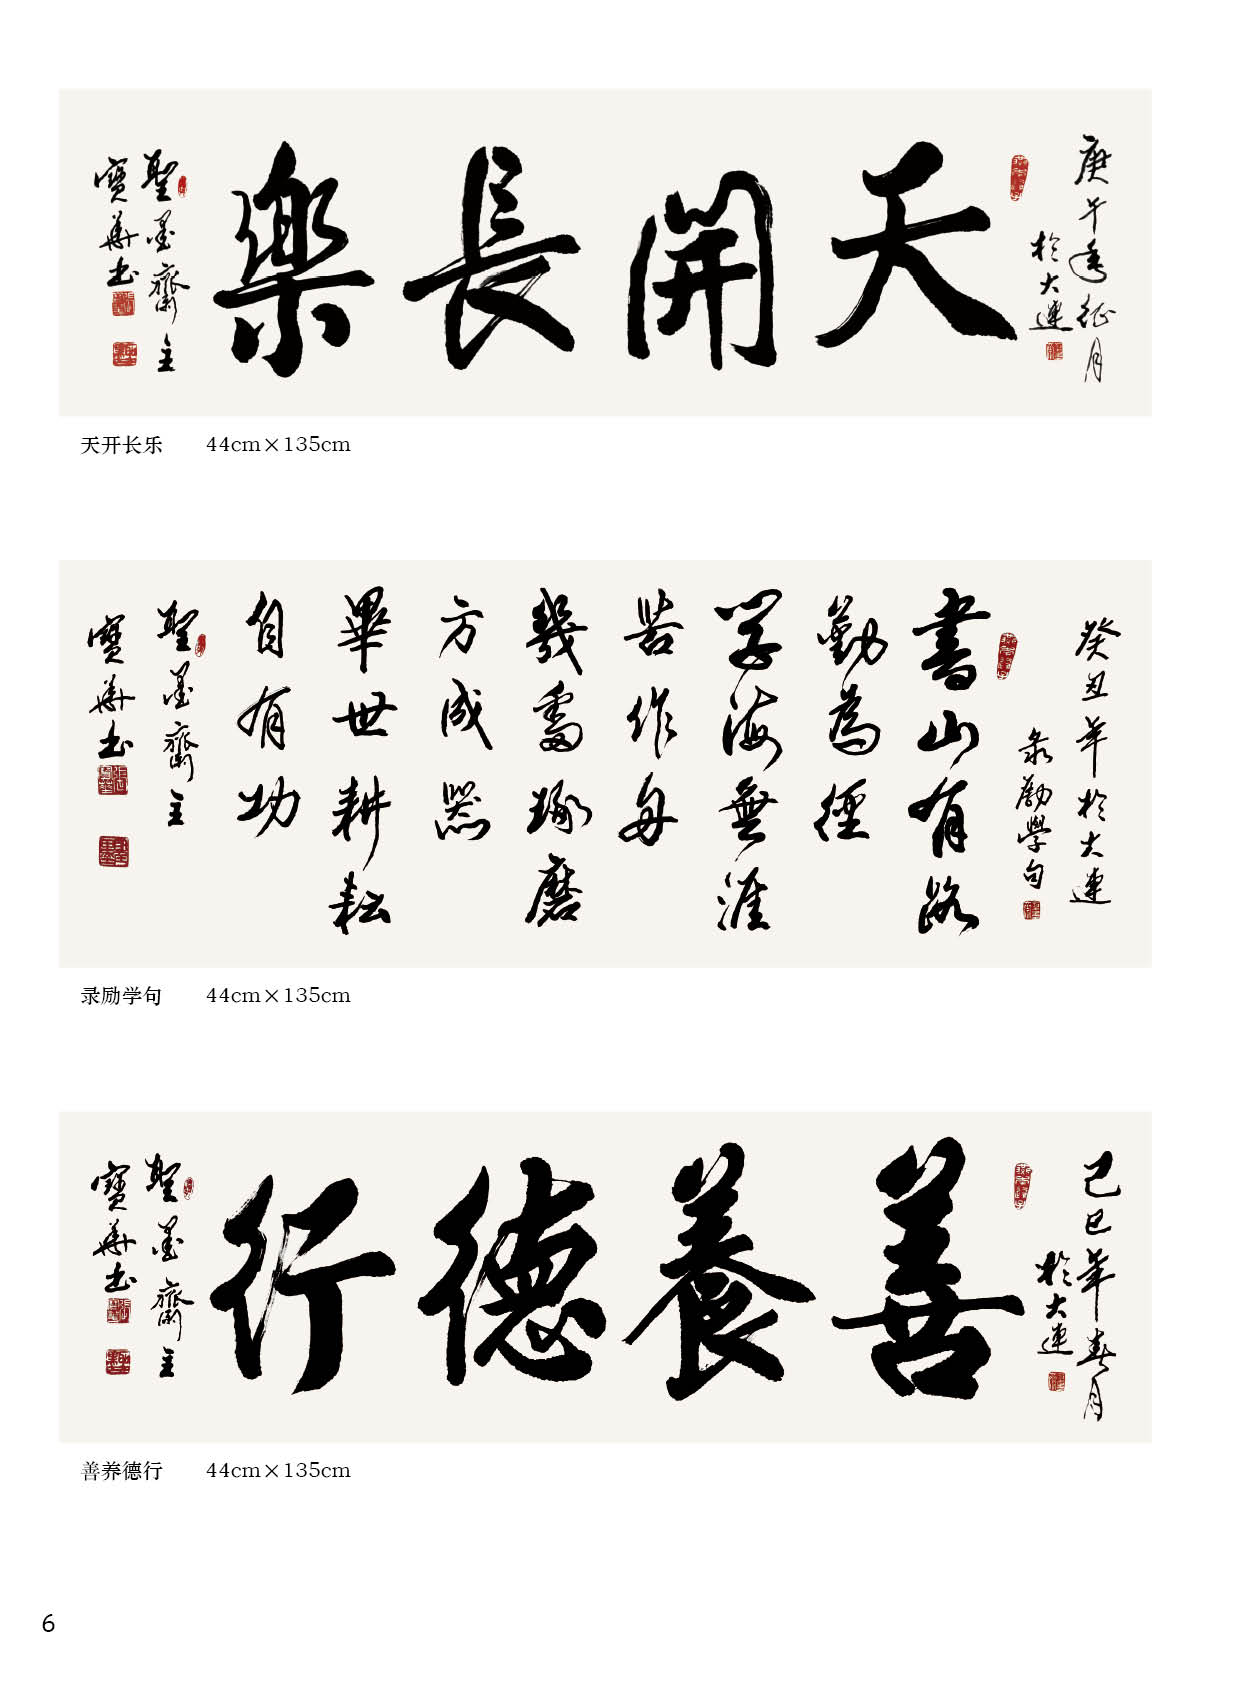 庚午年征月
於大連
天開長樂
聖墨齋主
寶華书
天开长乐 44cm×135cm
癸丑年於大連
录勵學句
書山有路
勤為徑
学海無涯
苦作舟
幾番琢磨
方成器
畢世耕耘
自有功
聖墨齋主
寶華书
录励学句 44cm×135cm
己巳年春月
於大連
善養德行
聖墨齋主
寶華书
善养德行 44cm×135cm
6